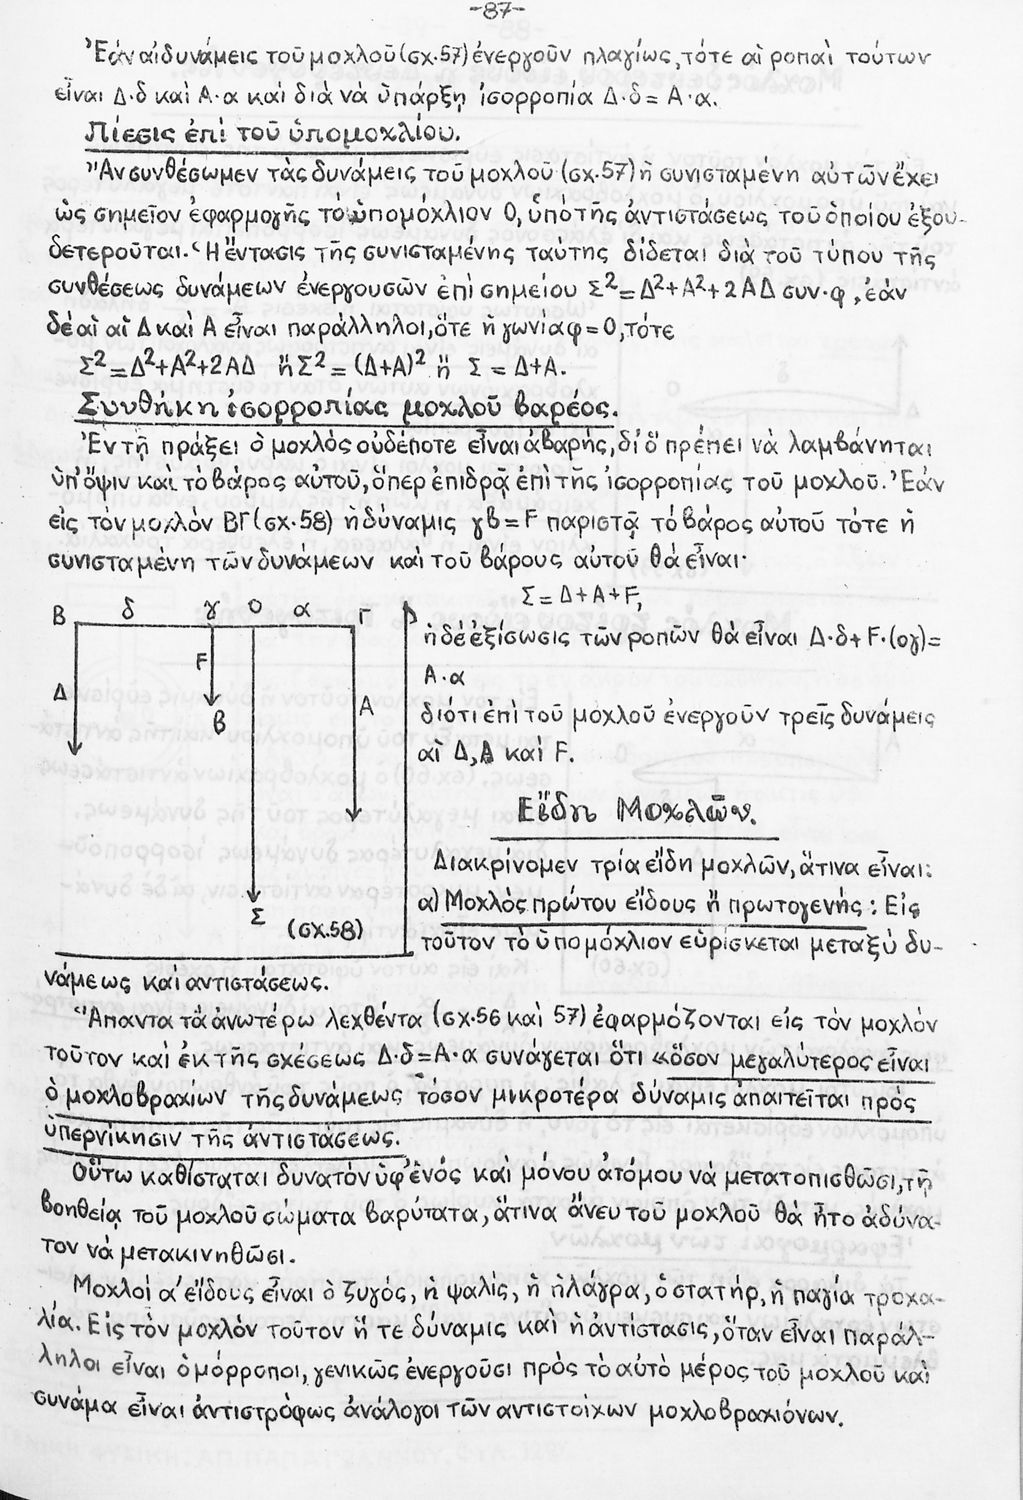 -87-
Ἐάν αἱ δυνάμεις τοῦ μοχλοῦ (σχ.57) ἐνεργοῦν πλαγίως, τότε αἱ ροπαὶ τούτων
εἶναι Δ·δ καὶ Α·α καὶ διὰ νὰ ὑπάρξῃ ἰσορροπία Δ·δ = Α·α.
Πίεσις ἐπὶ τοῦ ὑπομοχλίου.
Ἂν συνθέσωμεν τὰς δυνάμεις τοῦ μοχλοῦ (σχ.57) ἡ συνισταμένη αὐτῶν ἔχει
ὡς σημεῖον ἐφαρμογῆς τὸ ὑπομόχλιον Ο, ὑπὸ τῆς ἀντιστάσεως τοῦ ὁποίου ἐξου-
δετεροῦται. Ἡ ἔντασις τῆς συνισταμένης ταύτης δίδεται διὰ τοῦ τύπου τῆς
συνθέσεως δυνάμεων ἐνεργουσῶν ἐπὶ σημείου Σ²=Δ²+Α²+2ΑΔ συν·φ, ἐὰν
δὲ αἱ αἱ Δ καὶ Α εἶναι παράλληλοι, ὅτε ἡ γωνία φ=0, τότε
Σ²=Δ²+Α²+2ΑΔ ἤ Σ² = (Δ+Α)² ἤ Σ = Δ+Α.
Συνθήκη ἰσορροπίας μοχλοῦ βαρέος.
Ἐν τῇ πράξει ὁ μοχλὸς οὐδέποτε εἶναι ἀβαρής, δι' ὃ πρέπει νὰ λαμβάνηται
ὑπ' ὄψιν καὶ τὸ βάρος αὐτοῦ, ὅπερ ἐπιδρᾷ ἐπὶ τῆς ἰσορροπίας τοῦ μοχλοῦ. Ἐὰν
εἰς τὸν μοχλὸν ΒΓ (σχ.58) ἡ δύναμις γβ = F παριστᾷ τὸ βάρος αὐτοῦ τότε ἡ
συνισταμένη τῶν δυνάμεων καὶ τοῦ βάρους αὐτοῦ θὰ εἶναι·
Σ = Δ+Α+F,
ἡ δὲ ἐξίσωσις τῶν ροπῶν θὰ εἶναι Δ·δ+ F·(ογ)=
Α·α
διότι ἐπὶ τοῦ μοχλοῦ ἐνεργοῦν τρεῖς δυνάμεις
αἱ Δ, Α καὶ F.
Β δ γ Ο α Γ
F
Δ
Α
β
Σ
(σχ.58)
Εἴδη Μοχλῶν.
Διακρίνομεν τρία εἴδη μοχλῶν, ἅτινα εἶναι:
α) Μοχλὸς πρώτου εἴδους ἤ πρωτογενής: Εἰς
τοῦτον τὸ ὑπομόχλιον εὑρίσκεται μεταξὺ δυ-
νάμεως καὶ ἀντιστάσεως.
Ἅπαντα τὰ ἀνωτέρω λεχθέντα (σχ.56 καὶ 57) ἐφαρμόζονται εἰς τὸν μοχλὸν
τοῦτον καὶ ἐκ τῆς σχέσεως Δ·δ=Α·α συνάγεται ὅτι «ὅσον μεγαλύτερος εἶναι
ὁ μοχλοβραχίων τῆς δυνάμεως τόσον μικροτέρα δύναμις ἀπαιτεῖται πρὸς
ὑπερνίκησιν τῆς ἀντιστάσεως.
Οὕτω καθίσταται δυνατὸν ὑφ' ἑνὸς καὶ μόνου ἀτόμου νὰ μετατοπισθῶσι, τῇ
βοηθείᾳ τοῦ μοχλοῦ σώματα βαρύτατα, ἅτινα ἄνευ τοῦ μοχλοῦ θὰ ἦτο ἀδύνα-
τον νὰ μετακινηθῶσι.
Μοχλοί α΄ εἴδους εἶναι ὁ ζυγός, ἡ ψαλίς, ἡ ἠλάγρα, ὁ στατήρ, ἡ παγία τροχα-
λία. Εἰς τὸν μοχλὸν τοῦτον ἥ τε δύναμις καὶ ἡ ἀντίστασις, ὅταν εἶναι παράλ-
ληλοι εἶναι ὁμόρροποι, γενικῶς ἐνεργοῦσι πρὸς τὸ αὐτὸ μέρος τοῦ μοχλοῦ καὶ
συνάμα εἶναι ἀντιστρόφως ἀνάλογοι τῶν ἀντιστοίχων μοχλοβραχιόνων.